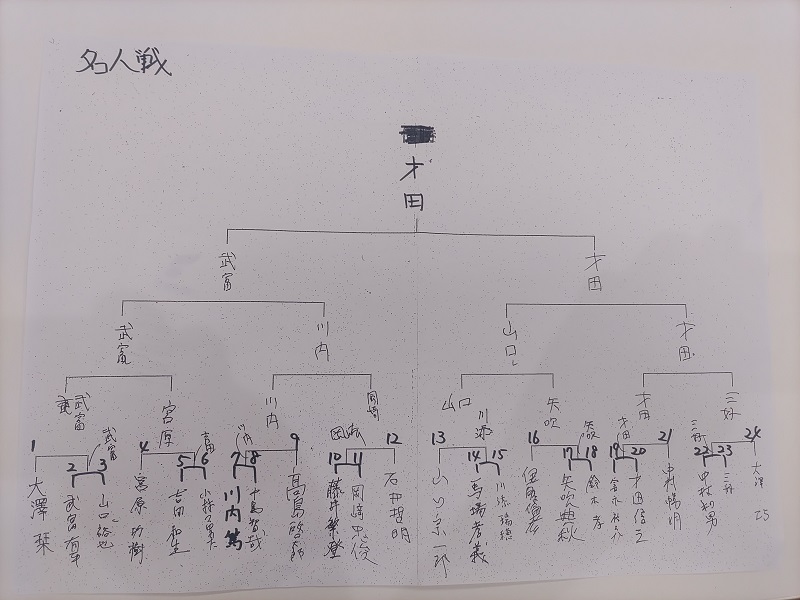 名人戦
才田
武富
才田
武富
川内
山口
才田
武富
宮原
川内
岡崎
山口
矢吹
才田
三好
武富
吉田
川内
岡崎
川添
矢吹
才田
三好
1
2
3
4
5
6
7
8
9
10
11
12
13
14
15
16
17
18
19
20
21
22
23
24
大澤 栞
武富有華
山口 裕也
宮原 功樹
吉田 和生
川内 篤
高島啓
藤井
岡崎忠俊
石井哲明
山口京一郎
馬場孝義
川添 瑞穂
矢吹典秋
鈴木 孝
才田信之
中村暢明
中村和男
三好
大澤 巧